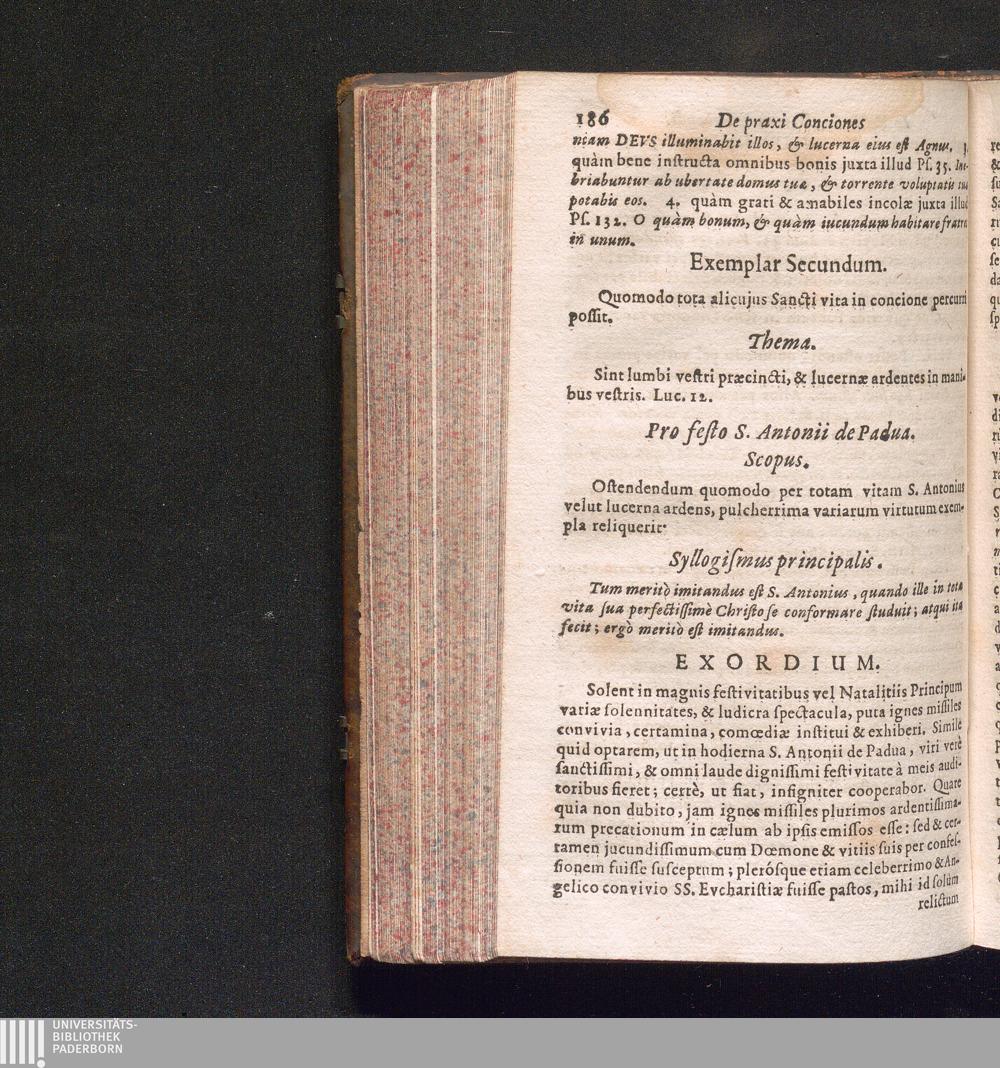 186 De praxi Conciones
niam DEVS illuminabit illos, & lucerna eius eſt Agnus. 3
quàm bene inſtructa omnibus bonis juxta illud Pſ. 35. Ine-
briabuntur ab ubertate domus tuæ, & torrente voluptatis tuæ
potabis eos. 4. quàm grati & amabiles incolæ juxta illud
Pſ. 132. O quàm bonum, & quàm iucundum habitare fratres
in unum.
Exemplar Secundum.
Quomodo tota alicujus Sancti vita in concione percurri
poſſit.
Thema.
Sint lumbi veſtri præcincti, & lucernæ ardentes in mani-
bus veſtris. Luc. 12.
Pro feſto S. Antonii de Padua.
Scopus.
Oſtendendum quomodo per totam vitam S. Antonius
velut lucerna ardens, pulcherrima variarum virtutum exem-
pla reliquerit.
Syllogiſmus principalis.
Tum meritò imitandus eſt S. Antonius, quando ille in tota
vita ſua perfectiſſimè Chriſto ſe conformare ſtuduit; atqui ita
fecit; ergò meritò eſt imitandus.
EXORDIUM.
Solent in magnis feſtivitatibus vel Natalitiis Principum
variæ ſolennitates, & ludicra ſpectacula, puta ignes miſſiles
convivia, certamina, comœdiæ inſtitui & exhiberi. Simile
quid optarem, ut in hodierna S. Antonii de Padua, viri verè
ſanctiſſimi, & omni laude digniſſimi feſtivitate à meis audi-
toribus fieret; certè, ut fiat, inſigniter cooperabor. Quare
quia non dubito, jam ignes miſſiles plurimos ardentiſſima-
rum precationum in cælum ab ipſis emiſſos eſſe: ſed & cer-
tamen jucundiſſimum cum Dœmone & vitiis ſuis per confeſ-
ſionem fuiſſe ſuſceptum; plerósque etiam celeberrimo & An-
gelico convivio SS. Evchariſtiæ fuiſſe paſtos, mihi id ſolùm
relictum
UNIVERSITÄTS-
BIBLIOTHEK
PADERBORN